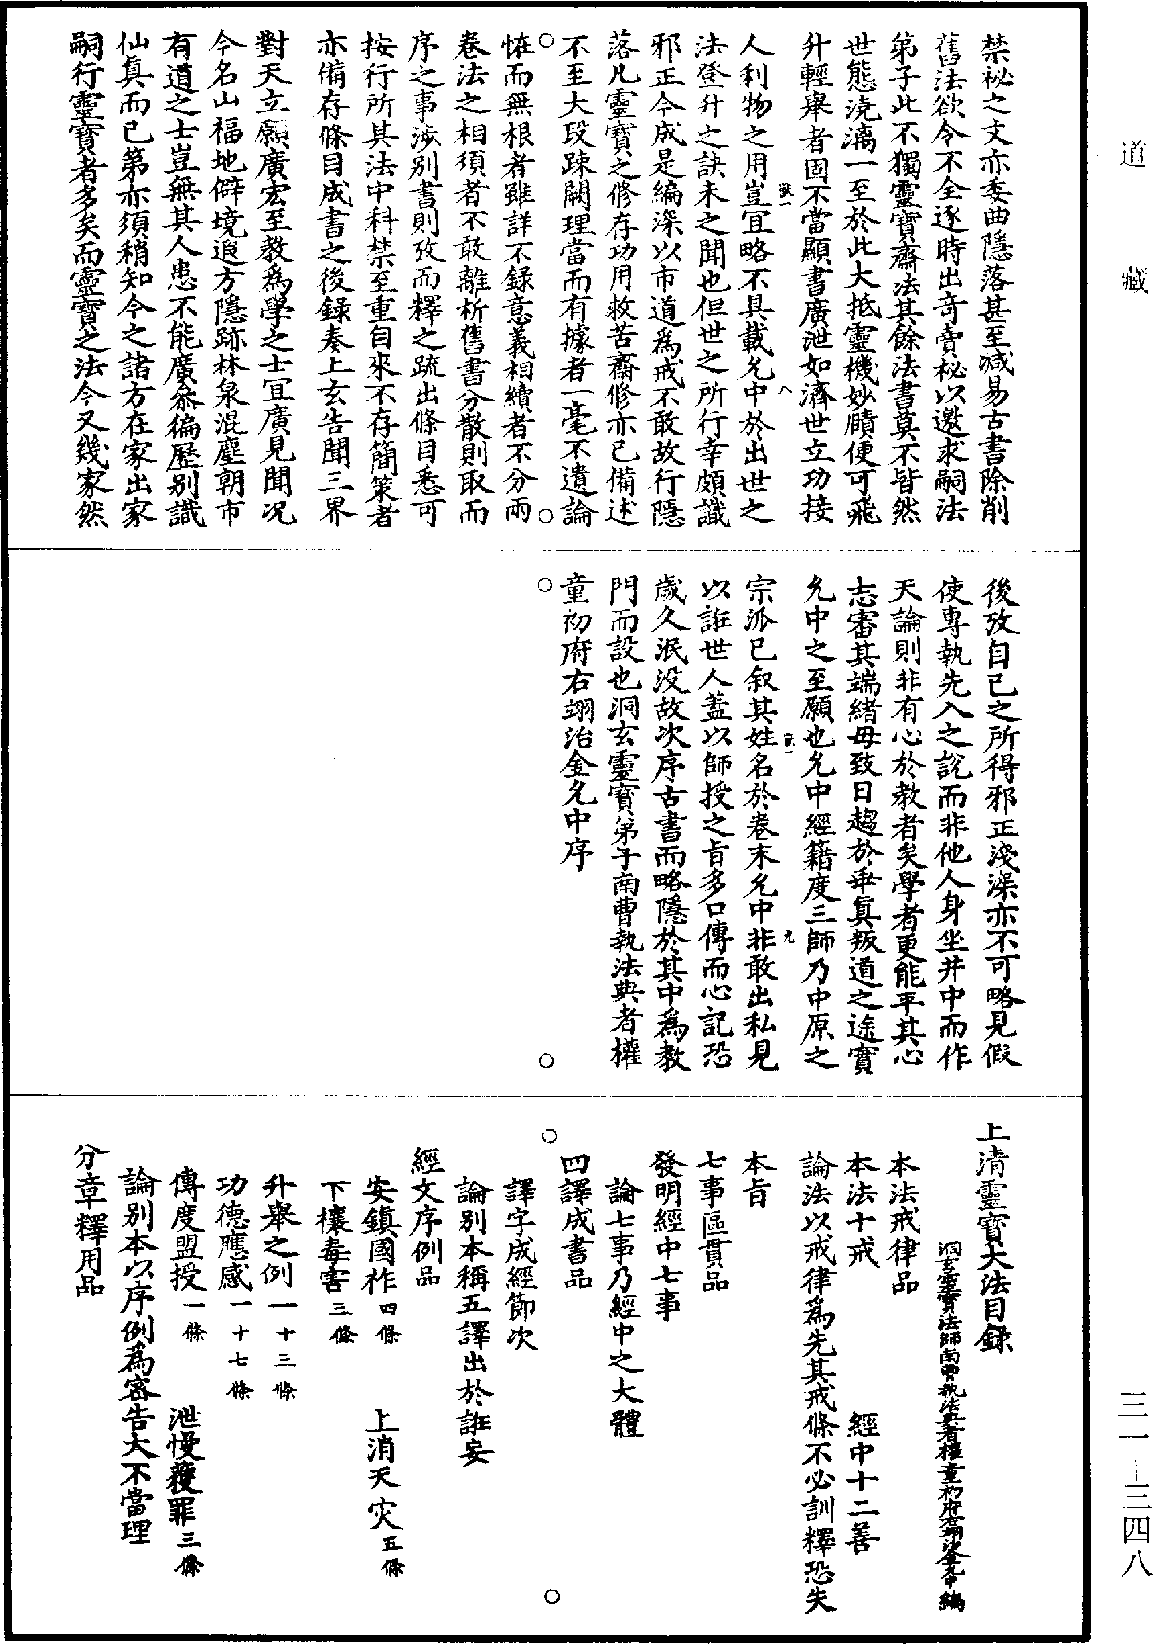 道藏
三一－三四八
禁祕之文亦委曲隱落甚至減易古書除削
舊法欲令不全逐時出奇賣秘以邀求嗣法
弟子此不獨靈寶齋法其餘法書莫不皆然
世態澆漓一至於此大抵靈機妙賾便可飛
升輕舉者固不當顯書廣泄如濟世立功接
人利物之用豈宜略不具載允中於出世之
法登升之訣未之聞也但世之所行幸頗識
邪正今成是編深以市道為戒不敢故行隱
落凡靈寶之修存功用救苦齋修亦已備述
不至大段踈闕理當而有據者一毫不遺論
恠而無根者雖詳不錄意義相續者不分兩
卷法之相須者不敢離析舊書分散則取而
序之事涉別書則攷而釋之疏出條目悉可
按行所其法中科禁至重自來不存簡策者
亦備存條目成書之後錄奏上玄告聞三界
對天立願廣宏至教為學之士宜廣見聞况
今名山福地僻境遐方隱跡林泉混廛朝市
有道之士豈無其人患不能廣叅徧歷別識
仙真而已第亦須稍知今之諸方在家出家
嗣行靈寶者多矣而靈寶之法今又幾家然
後攷自己之所得邪正淺深亦不可略見假
使專執先入之說而非他人身坐井中而作
天論則非有心於教者矣學者更能平其心
志審其端緒毋致日趨於乖真叛道之途實
允中之至願也允中經籍度三師乃中原之
宗派已叙其姓名於卷末允中非敢出私見
以誑世人蓋以師授之旨多口傳而心記恐
歲久泯没故次序古書而略隱於其中為教
門而設也洞玄靈寶弟子南曹執法典者權
童初府右翊治金允中序
上清靈寶大法目錄
洞玄靈寶法師南曹執法典者權童初府右翊治金允中編
本法戒律品
本法十戒　經中十二善
論法以戒律為先其戒條不必訓釋恐失
本旨
七事區貫品
發明經中七事
論七事乃經中之大體
四譯成書品
譯字成經節次
論別本稱五譯出於誑妄
經文序例品
安鎮國祚四條　上消天灾五條
下禳毒害三條
升舉之例一十三條
功德應感一十七條
傳度盟授一條　泄慢獲罪三條
論別本以序例為密告大不當理
分章釋用品